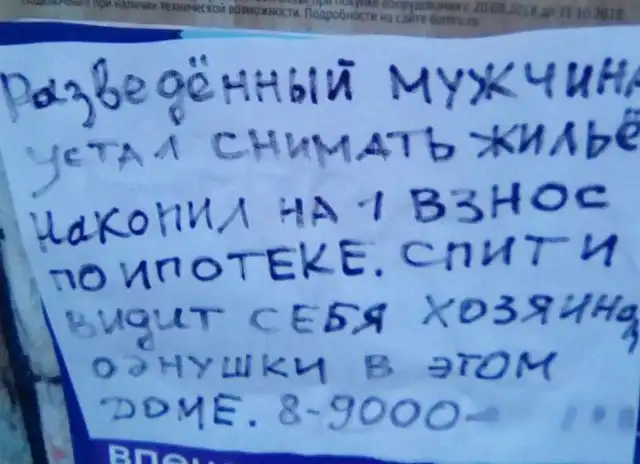 подключение при наличии технической возможности. Подробности на сайте
Разведённый мужчина
устал снимать жильё
накопил на 1 взнос
по ипотеке. Спит и
видит себя хозяином
однушки в этом
доме. 8-9000-
ВПЕЧ